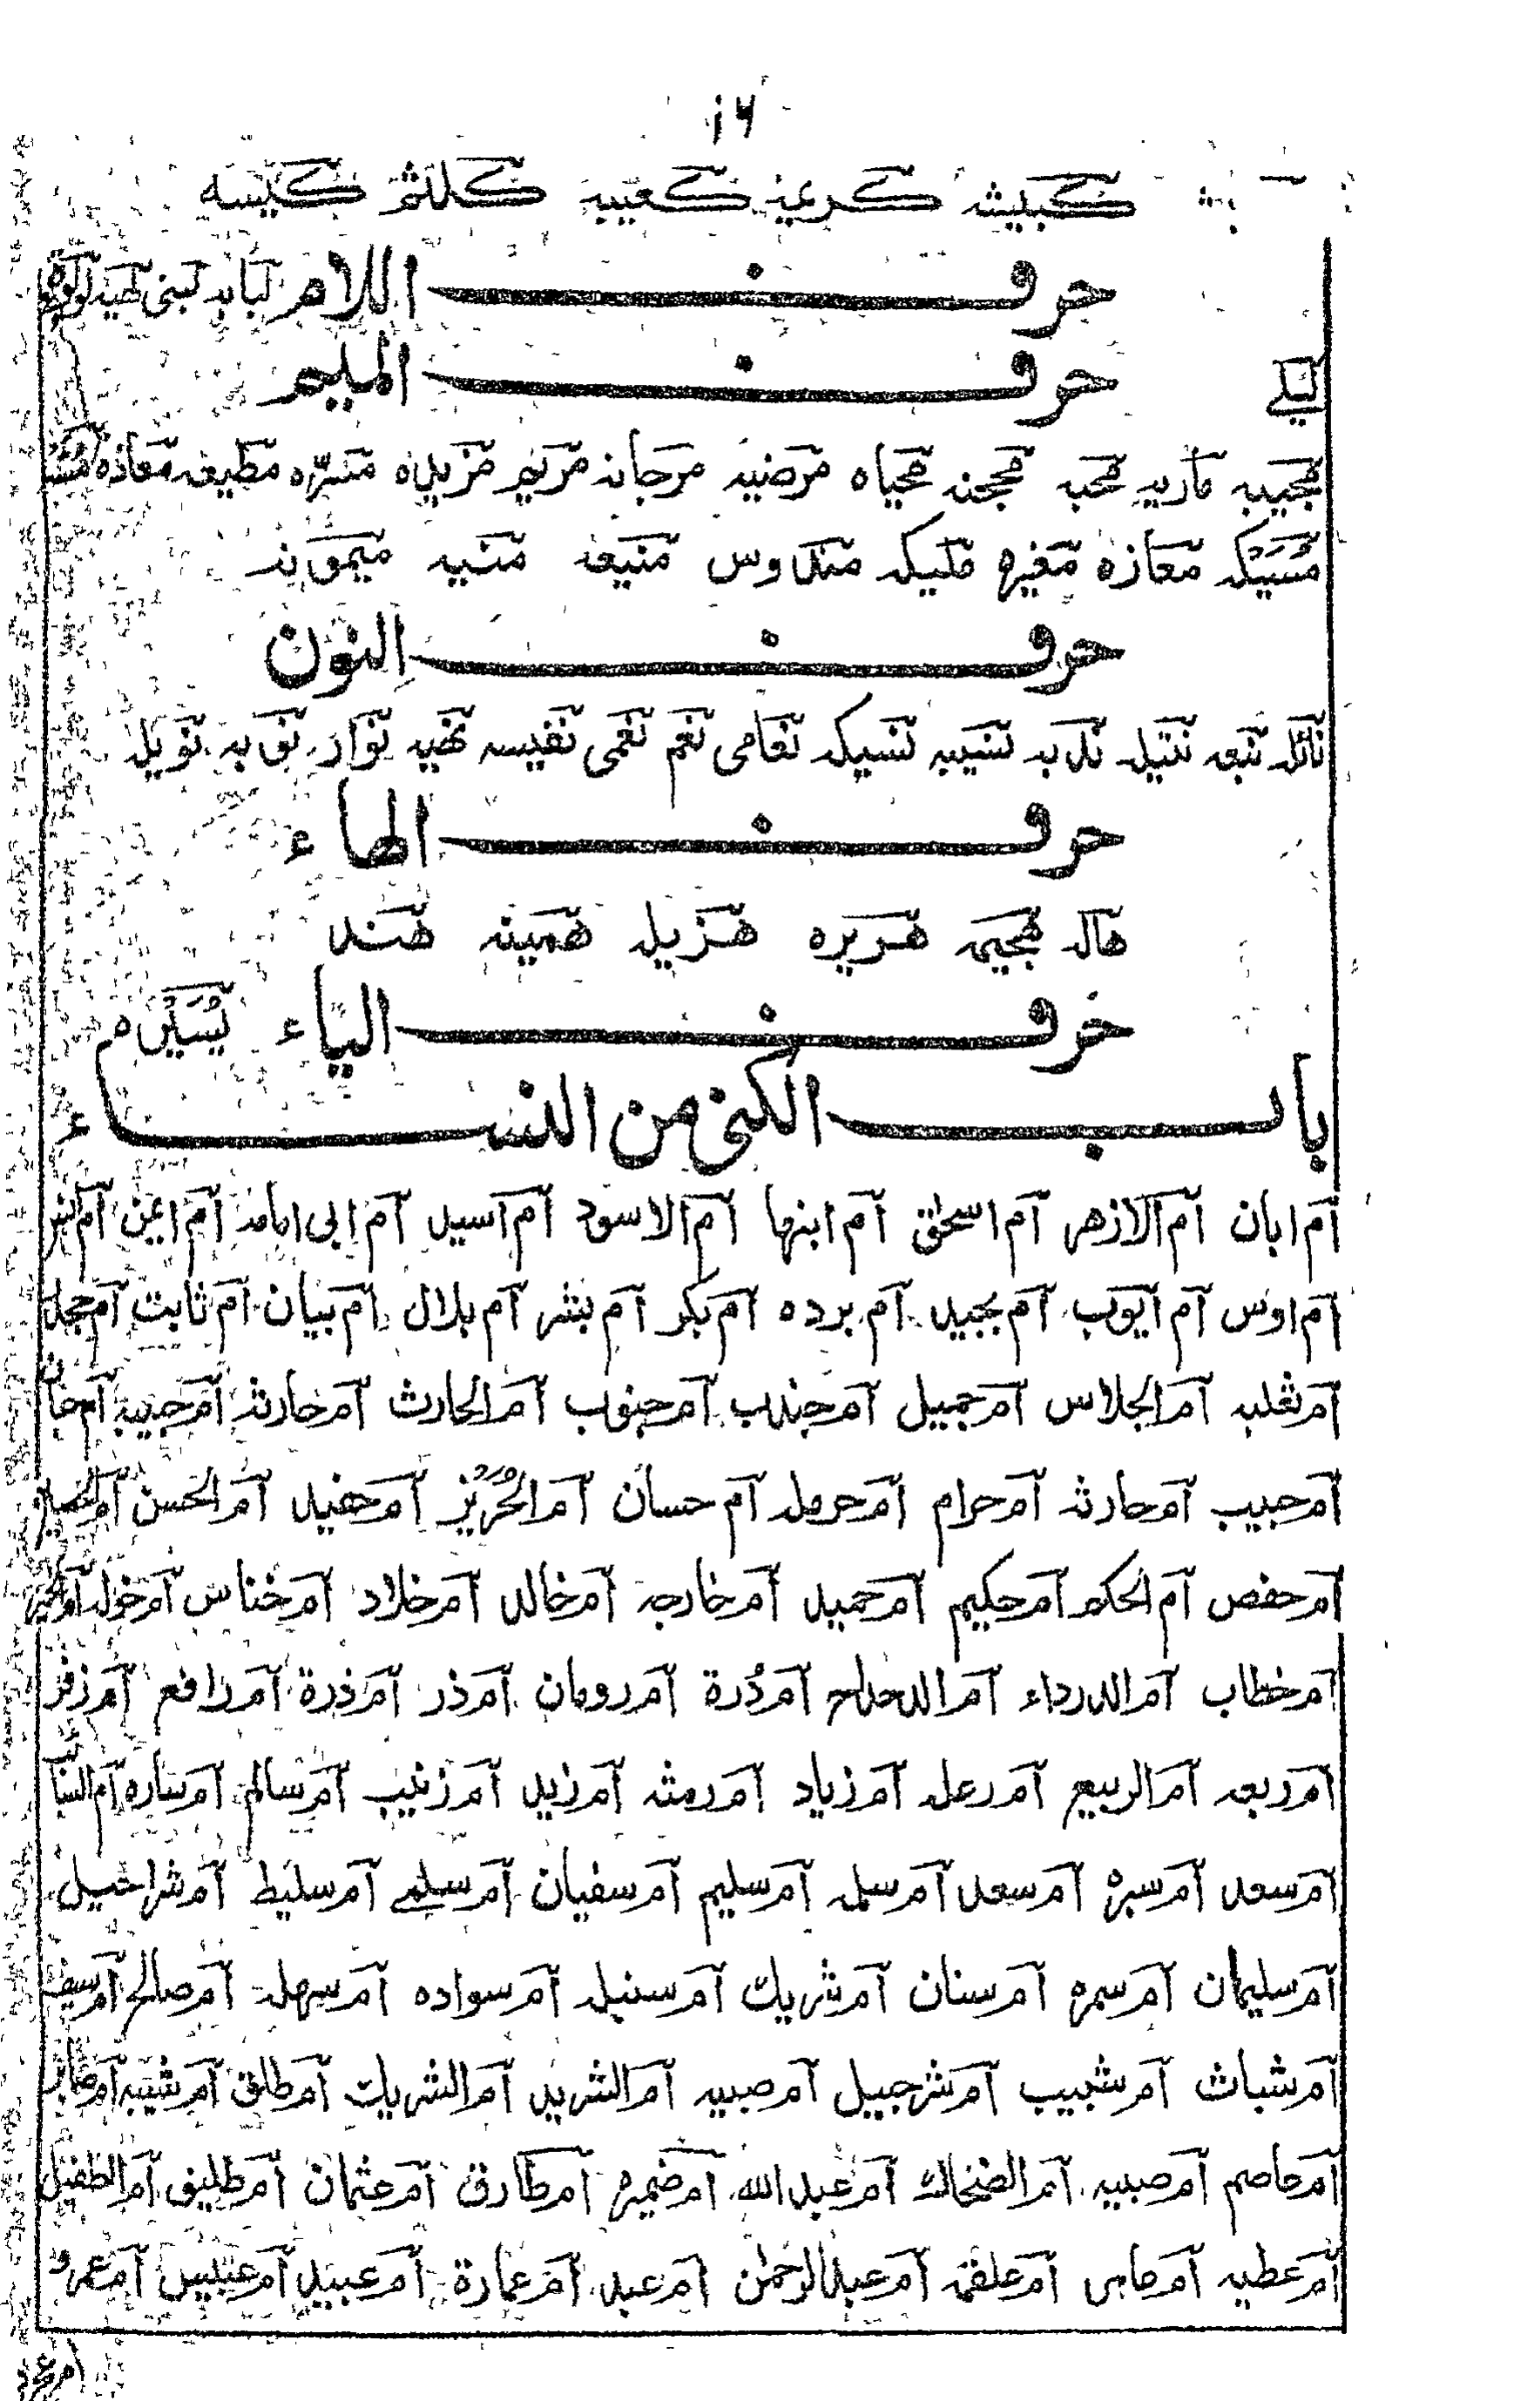 ١٦
كبيشه كريمه كعيبه كلثم كبيسه
حرف اللام لبابه لبنى لهيه لولوه
ليلے
حرف الميم
مجيبه ماريه محبه محجنه محياه مرضيه مرجانه مريم مزيلاه مسره مطيعه معاذه
مسيكه معازه مغيره مليكه مندوس منيعه منيه ميمونه
حرف النون
نائله نبعه نتيله ندبه نسيبه نسيكه نعامى نعم نعمى نفيسه نهيه نوار نوبه نويله
حرف الهاء
هاله هجيمه هريره هزيله همينه هند
حرف الياء يسيره
باب الكنى من النساء
ام ابان ام الازهر ام اسحٰق ام ابنها ام الاسود ام اسيد ام ابى امامه ام ايمن
ام اوس ام ايوب ام بجيد ام برده ام بكر ام بشر ام بلال ام بيان ام ثابت
ام ثعلبه ام الجلاس ام جميل ام جندب ام حبوب ام الحارث ام حارثه ام حبيبه
ام حبيب ام حارثه ام حرام ام حرمله ام حسان ام الحريز ام حفيد ام الحسن ام الحصين
ام حفص ام الحكم ام حكيم ام حميد ام خارجه ام خالد ام خلاد ام خناس ام خوله
ام خطاب ام الدرداء ام الدحداح ام درة ام رومان ام ذر ام ذرة ام رافع ام زفر
ام ربعه ام الربيع ام رعله ام زياد ام رمثه ام زيد ام زينب ام سالم ام ساره ام السائب
ام سعد ام سبره ام سعد ام سلمه ام سليم ام سفيان ام سلمے ام سليط ام شراحيل
ام سليمان ام سمره ام سنان ام شريك ام سنبله ام سواده ام سهله ام صالح ام سيف
ام شباث ام شبيب ام شرحبيل ام صبيه ام الشريد ام الشريك ام طلق ام شيبه
ام عاصم ام صبيه ام الضحاك ام عبد الله ام ضميره ام طارق ام عثمان ام طليق ام الطفيل
ام عطيه ام عامر ام علقمه ام عبد الرحمٰن ام عبد ام عمارة ام عبيد ام عبيس ام عمرو